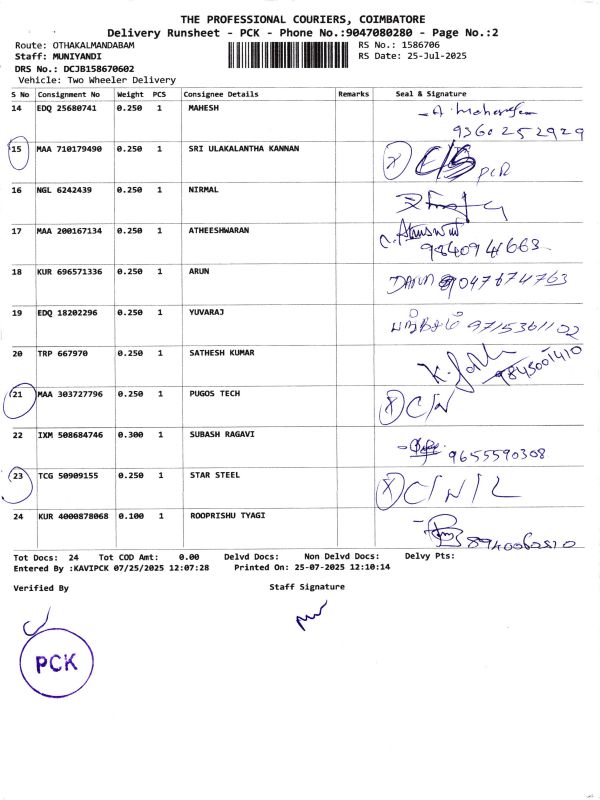 THE PROFESSIONAL COURIERS, COIMBATORE
Delivery Runsheet - PCK - Phone No.:9047080280 - Page No.:2
Route: OTHAKALMANDABAM RS No.: 1586706
Staff: MUNIYANDI RS Date: 25-Jul-2025
DRS No.: DCJB158670602
Vehicle: Two Wheeler Delivery
S No Consignment No Weight PCS Consignee Details Remarks Seal & Signature
14 EDQ 25680741 0.250 1 MAHESH
9360252929
15 MAA 710179490 0.250 1 SRI ULAKALANTHA KANNAN
PCR
16 NGL 6242439 0.250 1 NIRMAL
17 MAA 200167134 0.250 1 ATHEESHWARAN
9840941663
18 KUR 696571336 0.250 1 ARUN
9047674763
19 EDQ 18202296 0.250 1 YUVARAJ
9715361102
20 TRP 667970 0.250 1 SATHESH KUMAR
9845001410
21 MAA 303727796 0.250 1 PUGOS TECH X C/N
22 IXM 508684746 0.300 1 SUBASH RAGAVI
9655590308
23 TCG 50909155 0.250 1 STAR STEEL X C/N/L
24 KUR 4000878068 0.100 1 ROOPRISHU TYAGI
8940062810
Tot Docs: 24 Tot COD Amt: 0.00 Delvd Docs: Non Delvd Docs: Delvy Pts:
Entered By :KAVIPCK 07/25/2025 12:07:28 Printed On: 25-07-2025 12:10:14
Verified By Staff Signature
PCK